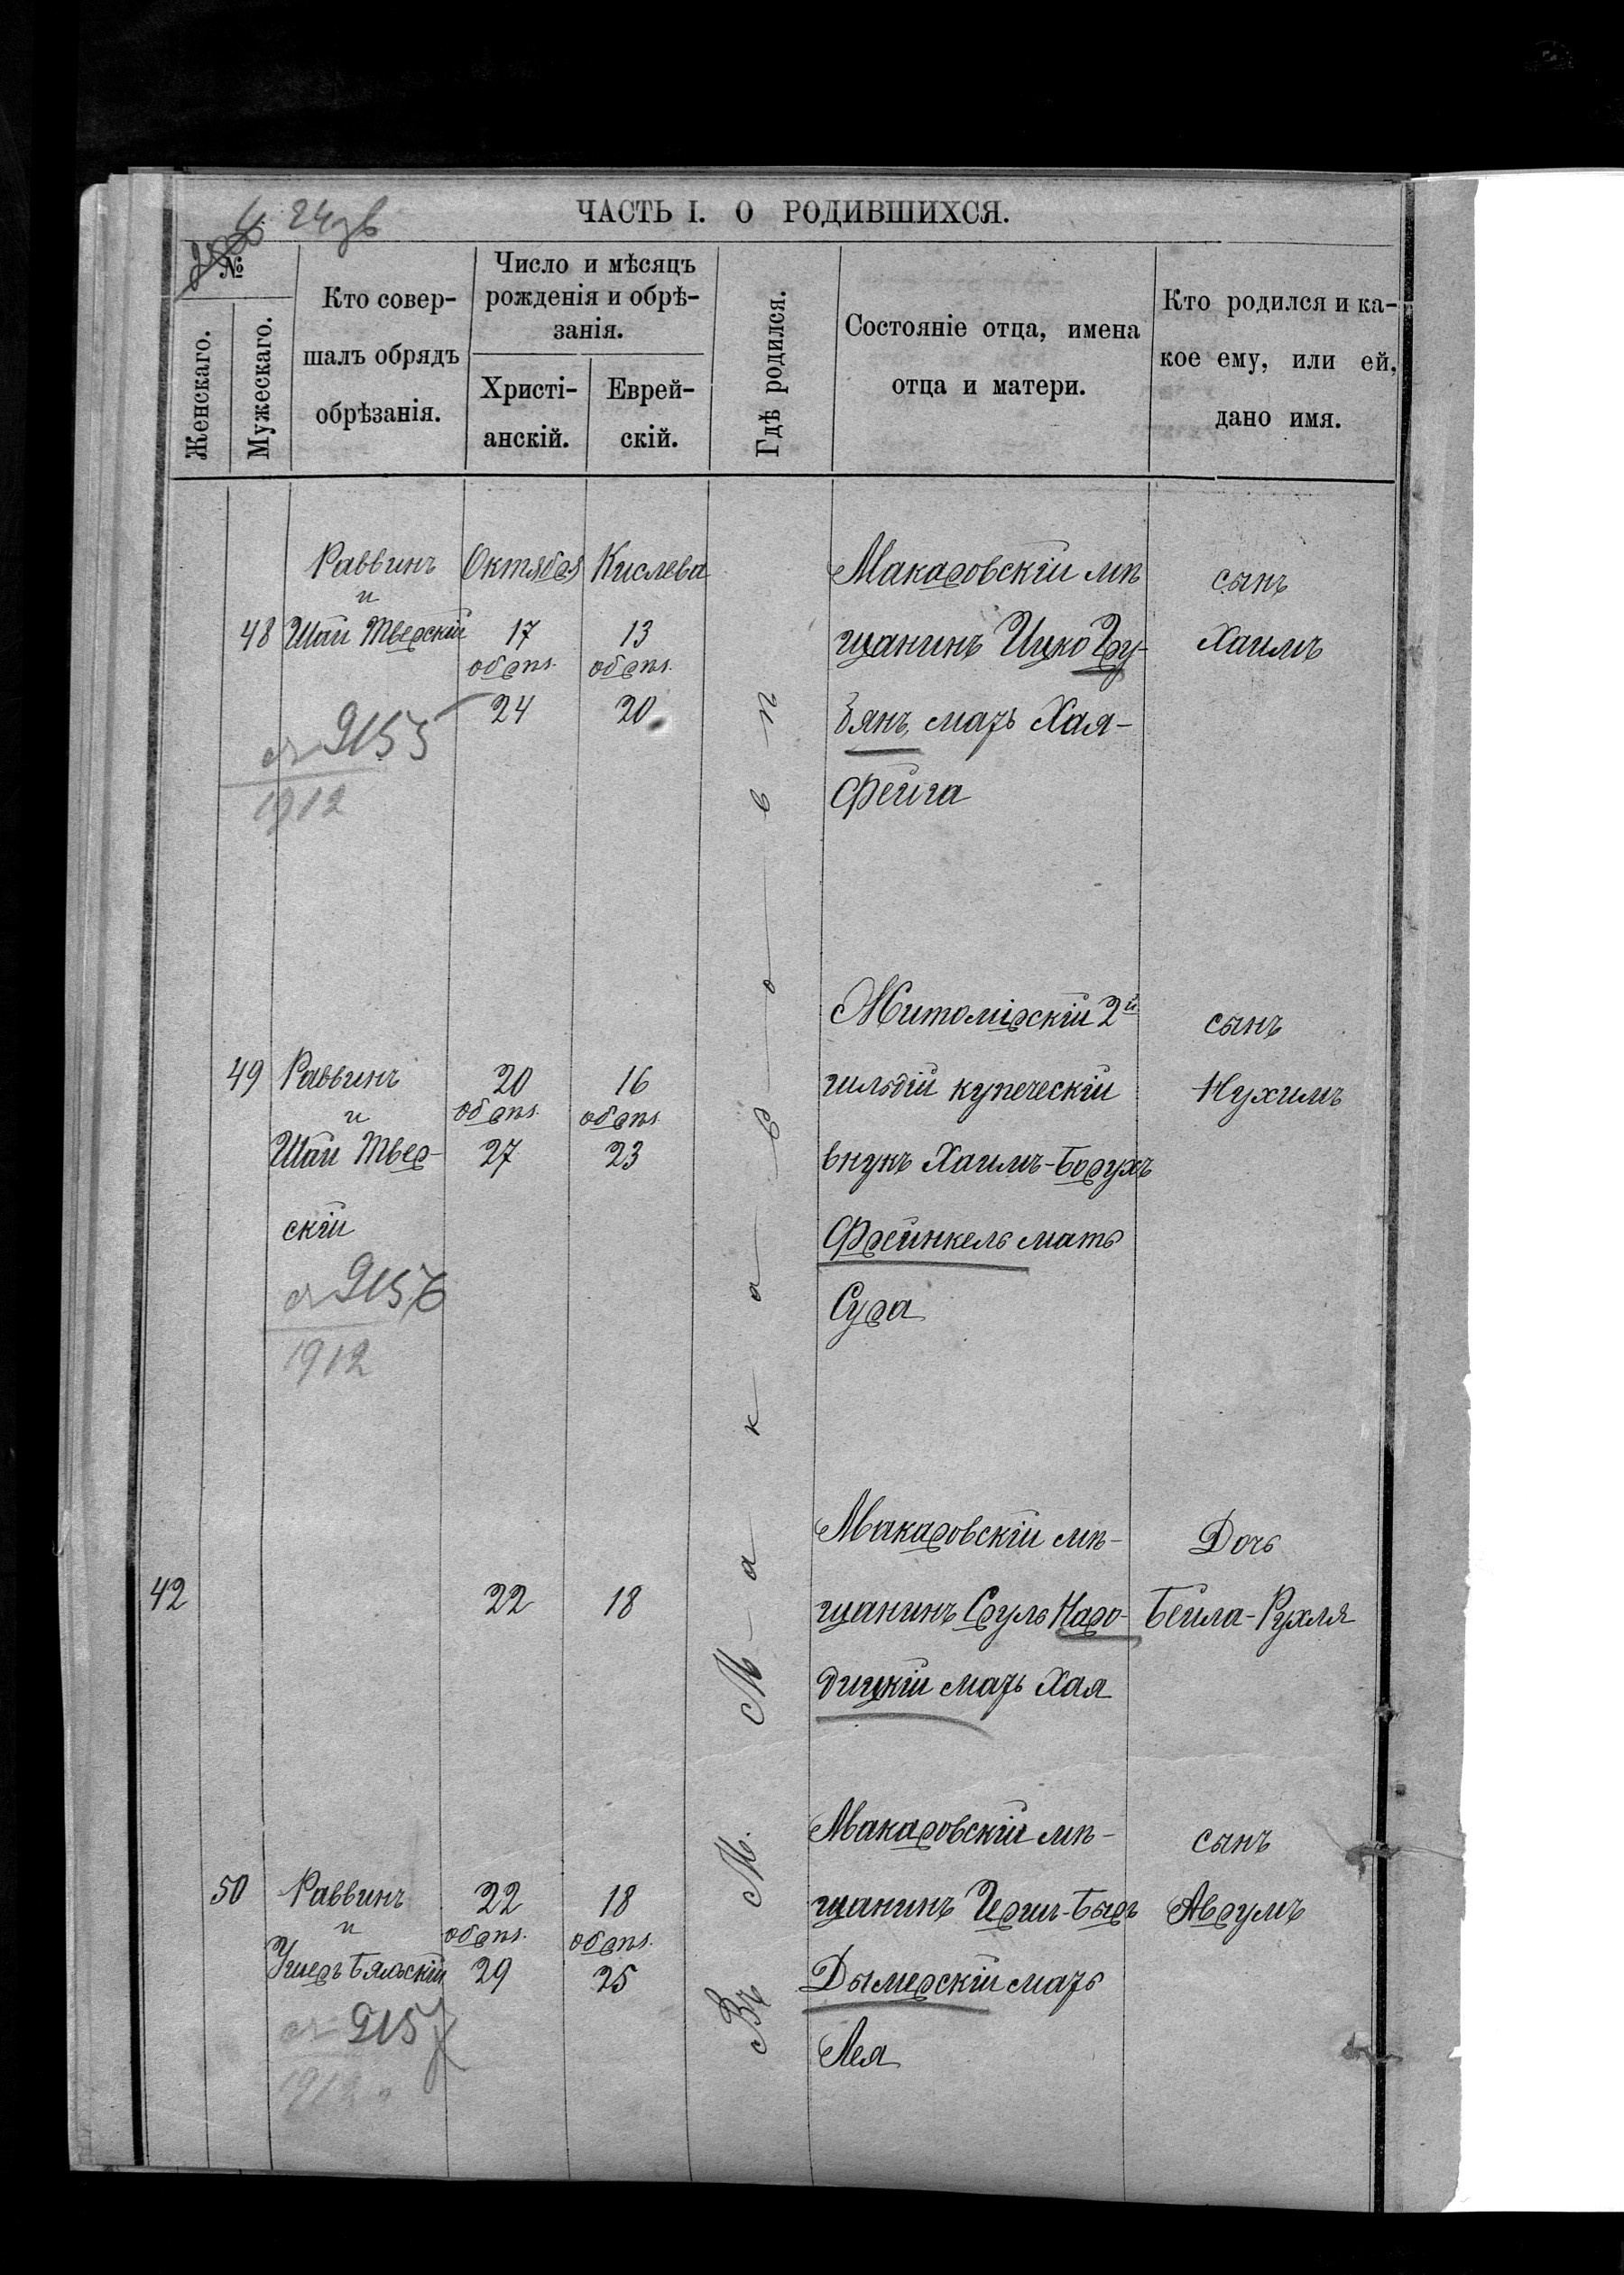 24зв
ЧАСТЬ I. О РОДИВШИХСЯ.
№
Женскаго.
Мужескаго.
Кто совер-
шалъ обрядъ
обрѣзанія.
Число и мѣсяцъ
рожденія и обрѣ-
занія.
Христі-
анскій.
Еврей-
скій.
Гдѣ родился.
Состояніе отца, имена
отца и матери.
Кто родился и ка-
кое ему, или ей,
дано имя.
Въ М. Макаровѣ
48
Раввинъ
и
Шаи Тверскій
9155
1912
Октября
17
обрѣз.
24
Кислева
13
обрѣз.
20
Макаровскій мѣ
щанинъ Ицко Гру-
бянъ, мать Хая-
Фейга
сынъ
Хаимъ
49
Раввинъ
и
Шаи Твер-
скій
9156
1912
20
обрѣз.
27
16
обрѣз.
23
Житомірскій 2й
гильдій купеческій
внукъ Хаимъ-Борухъ
Френкель мать
Сура
сынъ
Нухимъ
42
22
18
Макаровскій мѣ-
щанинъ Сруль Наро-
дицкій мать Хая
Дочь
Бейла-Рухля
50
Раввинъ
и
Ушеръ Бяльскій
9157
1912
22
обрѣз.
29
18
обрѣз.
25
Макаровскій мѣ-
щанинъ Герш-Беръ
Дымерскій мать
Лея
сынъ
Аврумъ